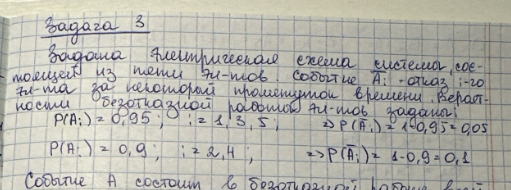 Задача 3
Задана электрическая схема системы, сос-
тоящей из пяти эл-тов. Событие Ai - отказ i-го
эл-та за некоторый промежуток времени. Вероят-
ности безотказной работы эл-тов заданы:
P(Ai) = 0,95 ; i = 1, 3, 5 ; => P(Āi) = 1-0,95 = 0,05
P(Ai) = 0,9 ; i = 2, 4 ; => P(Āi) = 1-0,9 = 0,1
Событие A состоит в безотказной работе всей